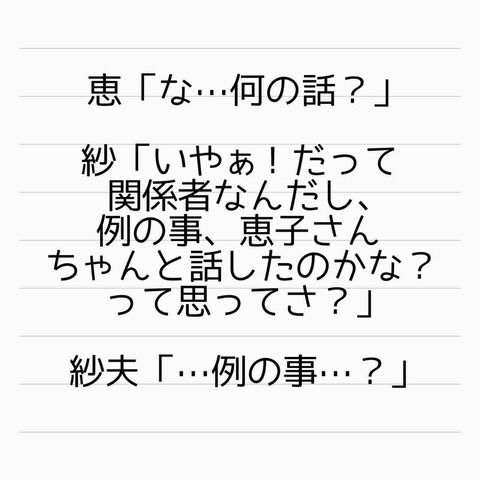 恵「な…何の話？」
紗「いやぁ！だって
関係者なんだし、
例の事、恵子さん
ちゃんと話したのかな？
って思ってさ？」
紗夫「…例の事…？」